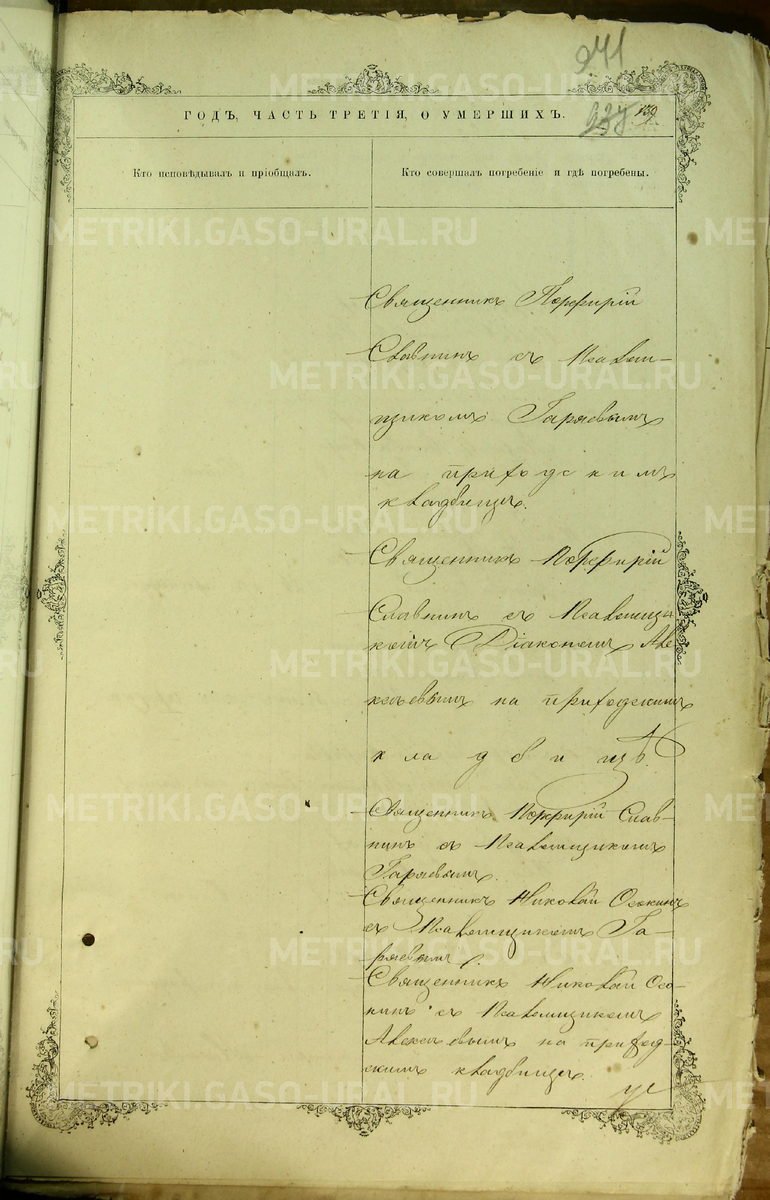 241
ГОДЪ, ЧАСТЬ ТРЕТІЯ, О УМЕРШИХЪ.
237 139
Кто исповѣдывалъ и пріобщалъ.
Кто совершалъ погребеніе и гдѣ погребены.
Священникъ Порфирій
Славнинъ съ Псалом-
щикомъ Гаряевымъ
на приходскимъ
кладбищѣ.
Священникъ Порфирій
Славнинъ съ Псаломщи
комъ Діакономъ Але
ксѣевымъ на приходскимъ
кладбищѣ.
Священникъ Порфирій Слав-
нинъ съ Псаломщикомъ
Гаряевымъ.
Священникъ Николай Осокинъ
съ Псаломщикомъ Га-
ряевымъ.
Священникъ Николай Осо-
кинъ съ Псаломщикомъ
Алексѣевымъ на приход-
скимъ кладбищѣ.
METRIKI.GASO-URAL.RU